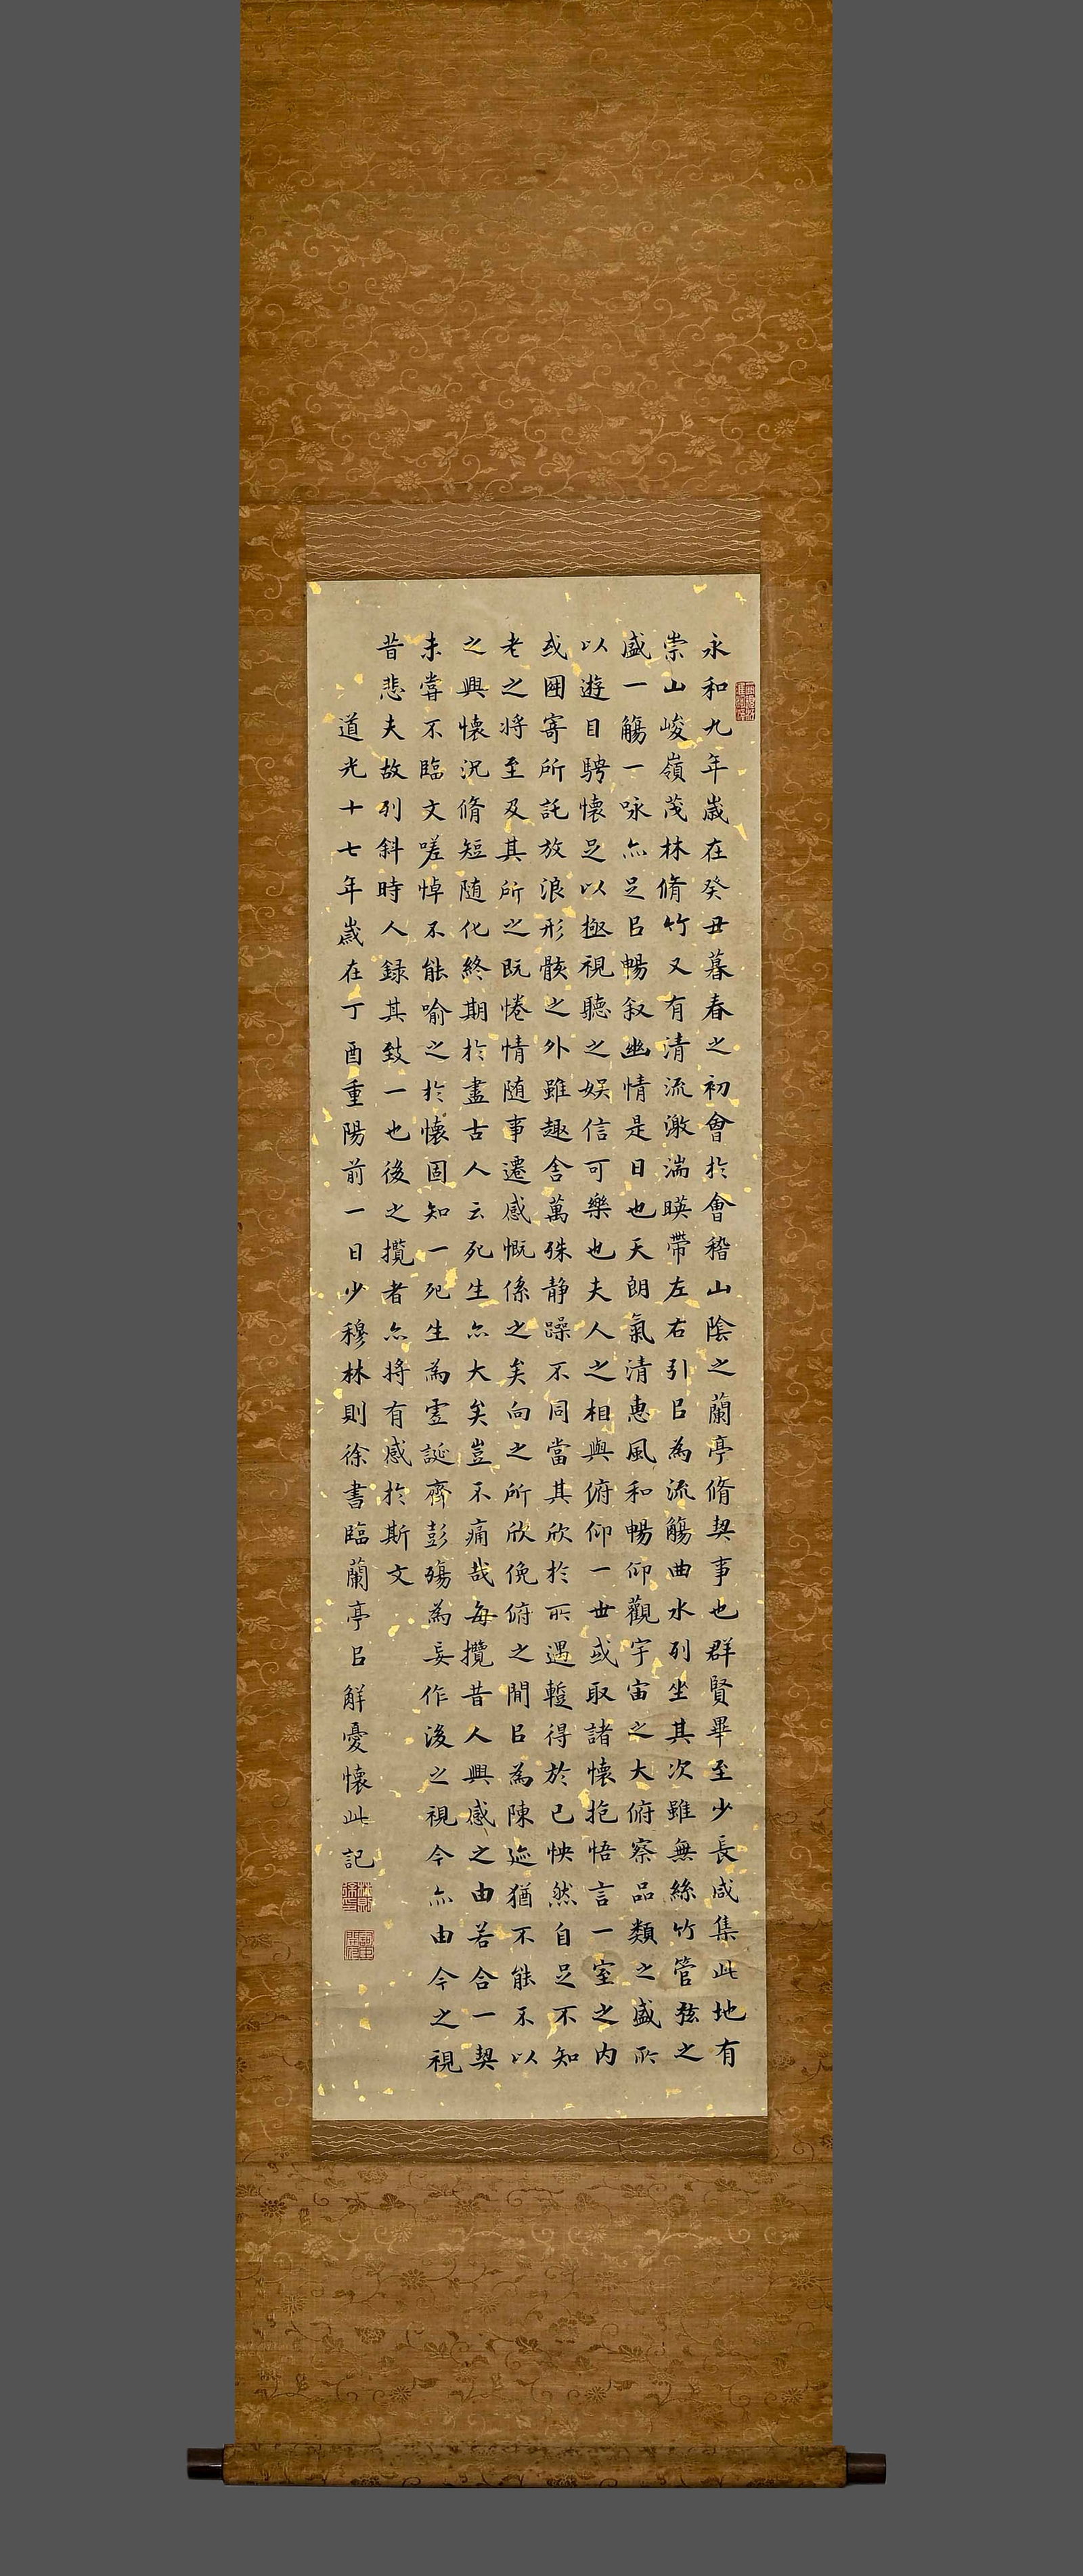 永和九年歲在癸丑暮春之初會於會稽山陰之蘭亭脩契事也群賢畢至少長咸集此地有
崇山峻嶺茂林脩竹又有清流激湍暎帶左右引㠯為流觴曲水列坐其次雖無絲竹管弦之
盛一觴一咏亦足㠯暢叙幽情是日也天朗氣清惠風和暢仰觀宇宙之大俯察品類之盛所
以遊目騁懷足以極視聽之娛信可樂也夫人之相與俯仰一世或取諸懷抱悟言一室之內
或因寄所託放浪形骸之外雖趣舍萬殊静躁不同當其欣於所遇蹔得於己怏然自足不知
老之将至及其所之既惓情随事遷感慨係之矣向之所欣俛俯之閒㠯為陳迹猶不能不以
之興懷況脩短随化終期於盡古人云死生亦大矣豈不痛哉每攬昔人興感之由若合一契
未嘗不臨文嗟悼不能喻之於懷固知一死生為虛誕齊彭殤為妄作後之視今亦由今之視
昔悲夫故列斜時人録其致一也後之攬者亦将有感於斯文
道光十七年歲在丁酉重陽前一日少穆林則徐書臨蘭亭㠯解憂懷此記